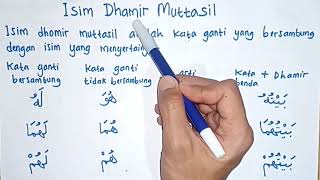 Isim Dhamir Muttasil
Isim dhomir muttasil adalah kata ganti yang bersambung
dengan isim yang menyertai
Kata ganti bersambung Kata ganti tidak bersambung Kata + Dhamir benda
لَهُ هُوَ بَيْتُهُ
لَهُمَا هُمَا بَيْتُهُمَا
لَهُمْ هُمْ بَيْتُهُمْ